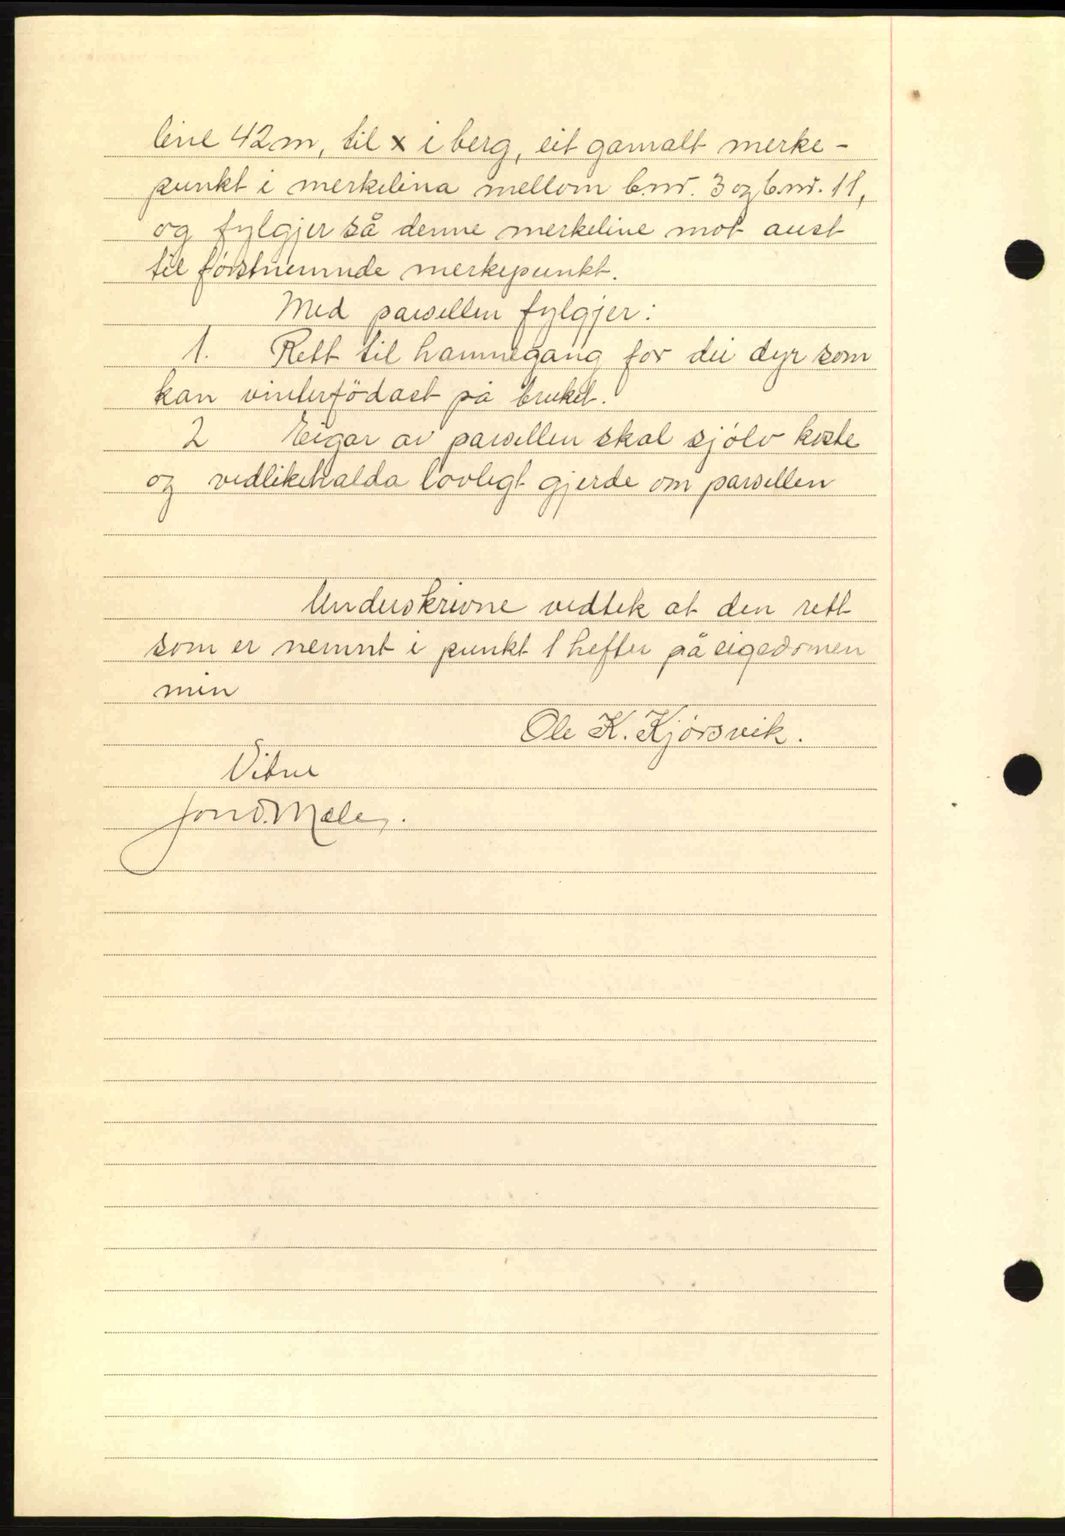 line 42m, til x i berg, eit gamalt merke-
punkt i merkelina mellom b.nr. 3 og b.nr. 11,
og fylgjer så denne merkeline mot aust
til førstnemnde merkepunkt.
Med parsellen fylgjer:
1. Rett til hamnegang for dei dyr som
kan vinterfödast på bruket.
2 Eigar av parsellen skal sjølv koste
og vedlikehalda lovlegt gjerde om parsellen
Underskrivne vedtek at den rett
som er nemnt i punkt 1 hefter på eigedomen
min
Ole K. Kjørsvik.
Vitne
Jon O. Mæle.